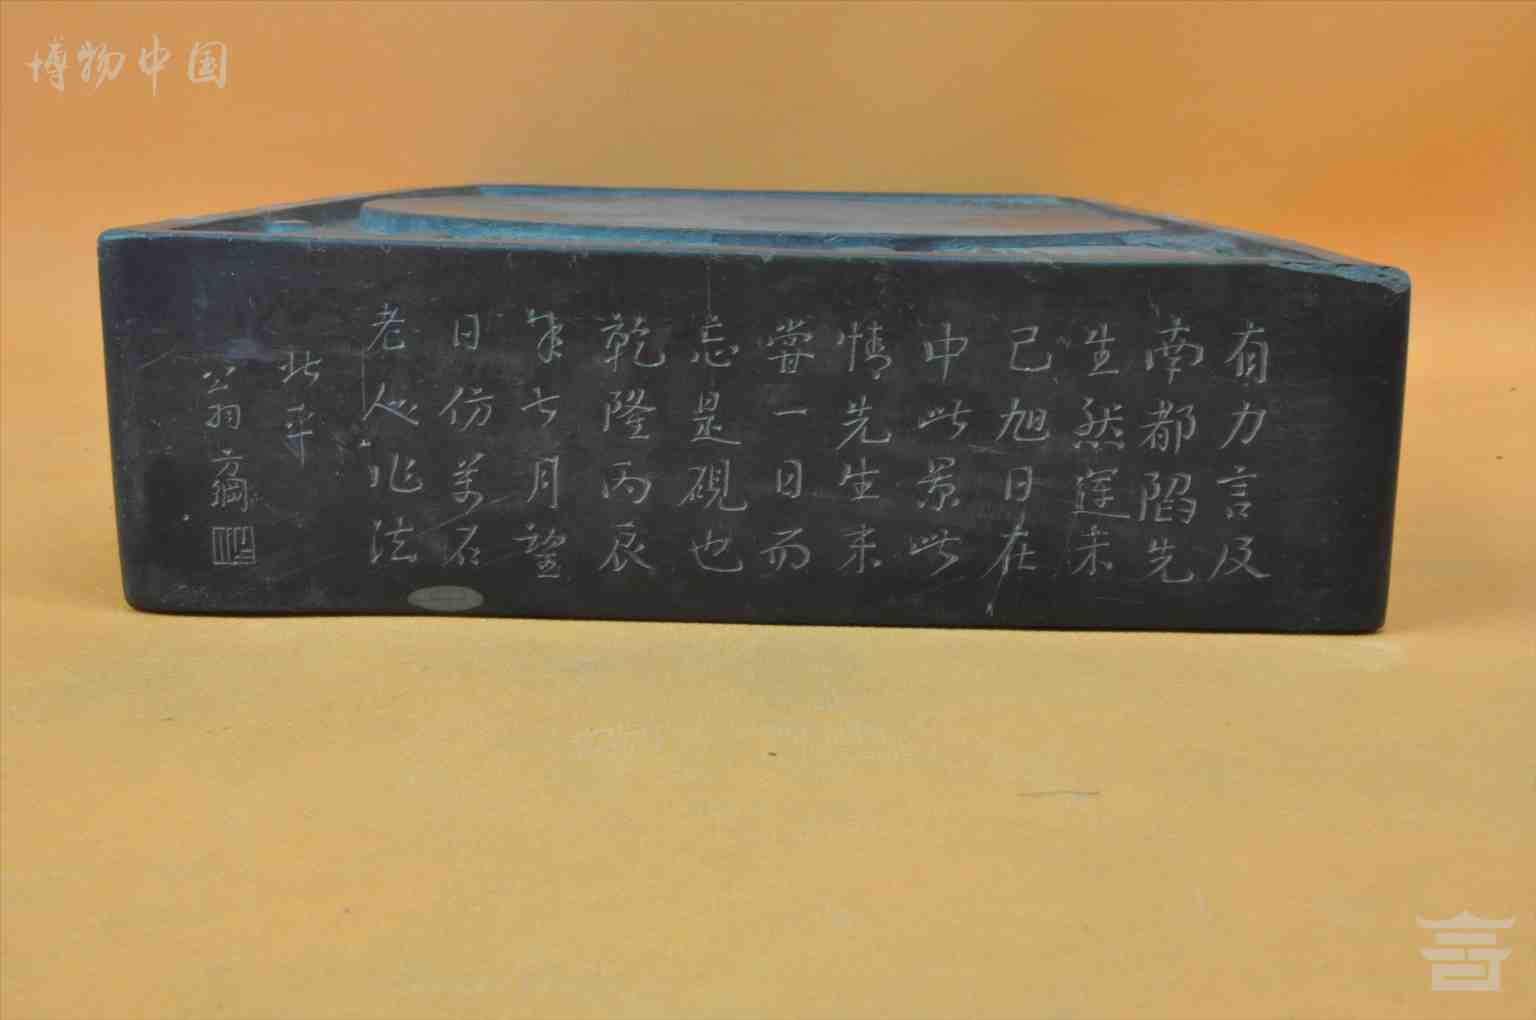 博物中国
有力言及
南都陷先
生然遲未
已旭日在
中此景此
情先生未
嘗一日而
忘是硯也
乾隆丙辰
年七月望
日仿萬石
老人作法
北平
翁方綱